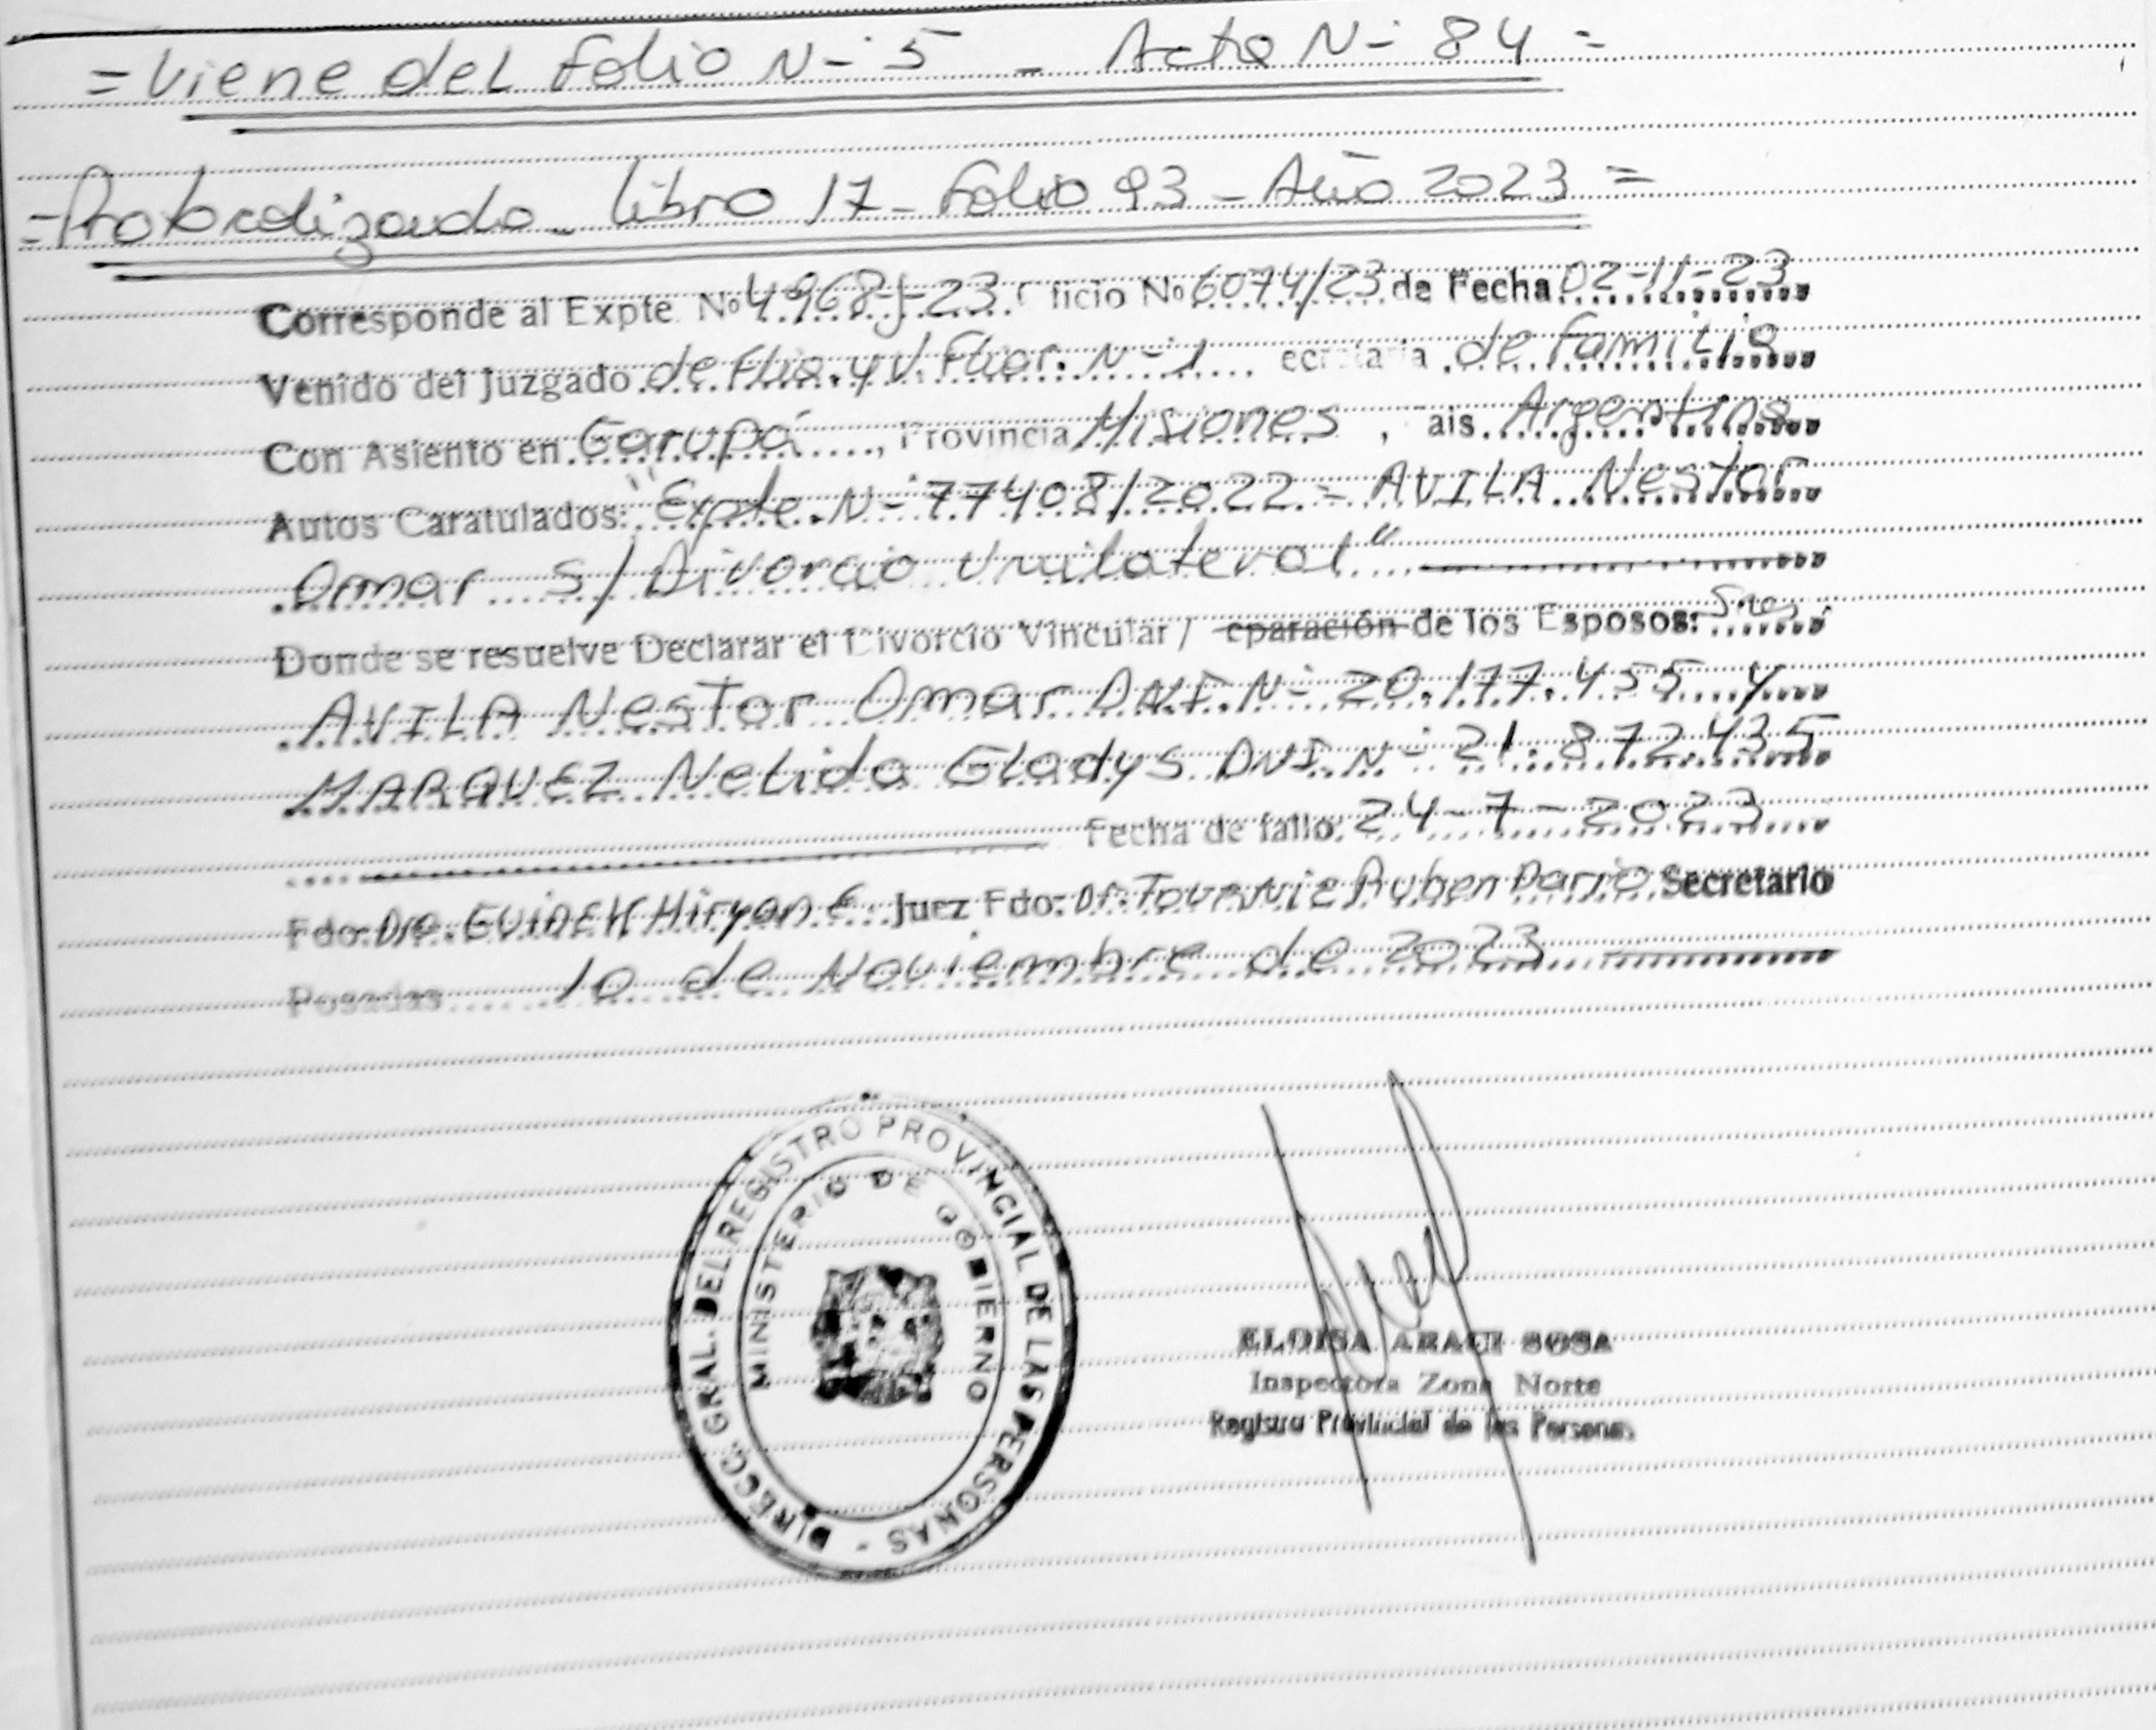 = Viene del Folio N- 5 - Acta N- 84 =
= Protocolizando - Libro 17 - Folio 93 - Año 2023 =
Corresponde al Expte. Nº 4968-J-23. icio Nº 6074/23 de Fecha 02-11-23
Venido del Juzgado de Flia. y V. Fliar. N- 1 ecretaria de Familia
Con Asiento en Garupá, Provincia Misiones, ais. Argentina
Autos Caratulados: "Expte. N- 77408/2022 - AVILA Nestor
Omar S/ Divorcio Unilateral"
Donde se resuelve Declarar el Divorcio Vincular / eparación de los Esposos: Sres.
AVILA Nestor Omar DNI. N- 20.177.455 y
MARQUEZ Nelida Gladys DNI. N- 21.872.435
Fecha de fallo: 24-7-2023
Fdo: Dra. Miryan E. Juez Fdo: Dr. Ruben Dario Secretario
Posadas 10 de Noviembre de 2023
DIRECC. GRAL. DEL REGISTRO PROVINCIAL DE LAS PERSONAS -
MINISTERIO DE GOBIERNO
ELOISA ARACI SOSA
Inspectora Zona Norte
Registro Provincial de las Personas